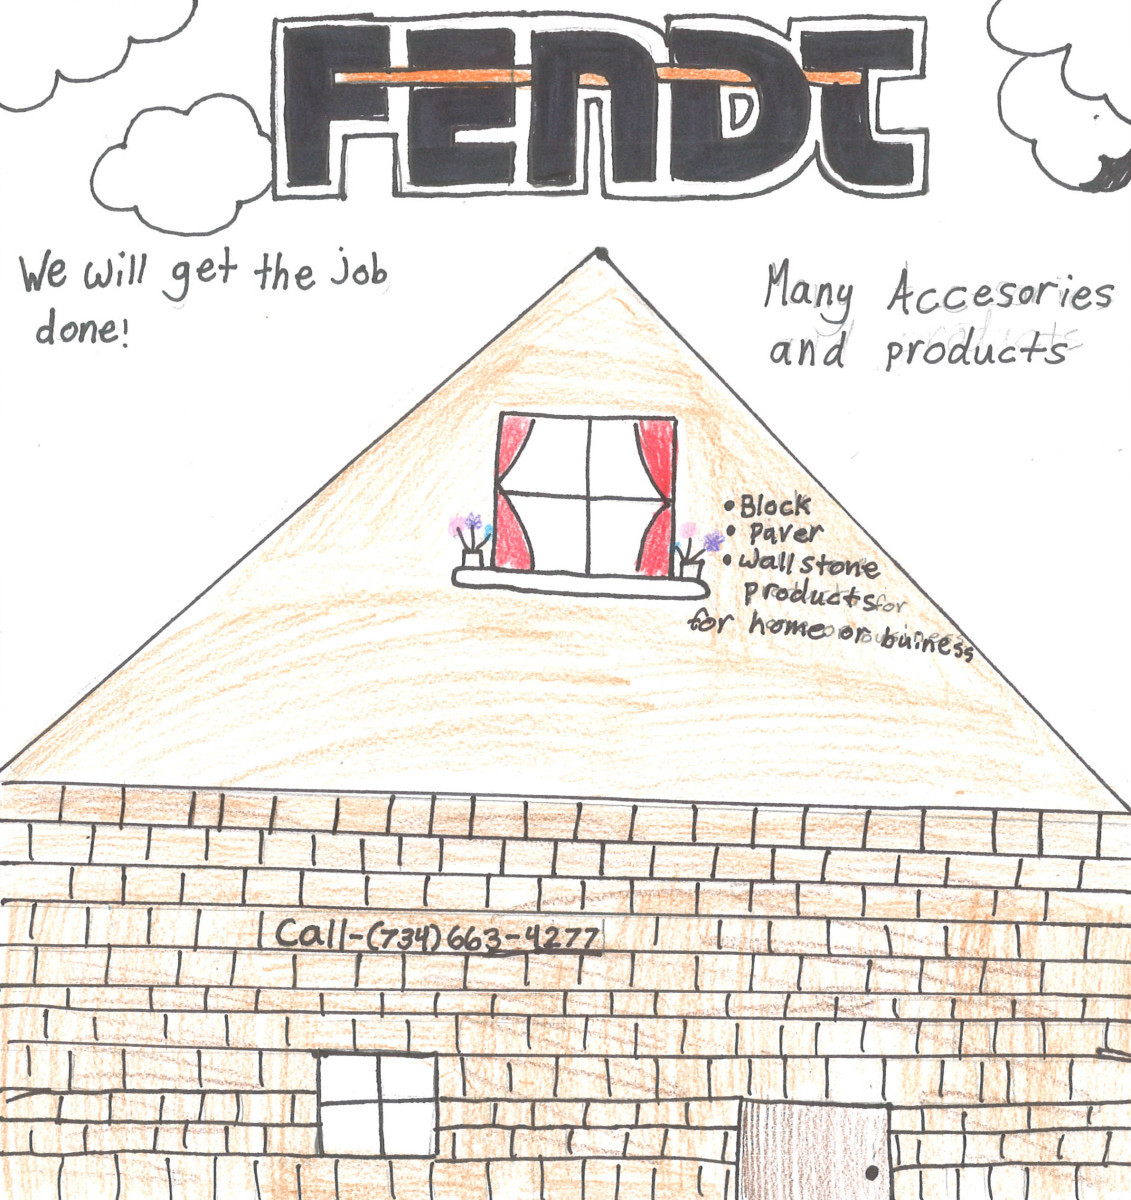 FENDT
We will get the job
done!
Many Accesories
and products
• Block
• Paver
• Wall stone
products
for home or buiness
Call-(734) 663-4277